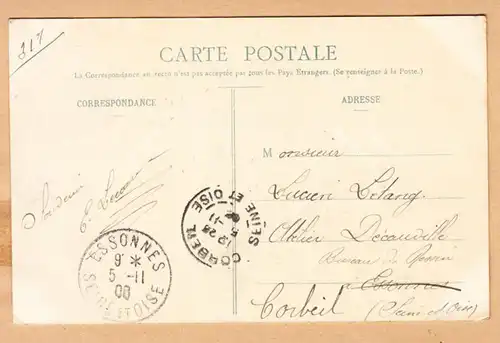 217
CARTE POSTALE
La Correspondance au recto n'est pas acceptée par tous les Pays Etrangers. (Se renseigner à la Poste.)
CORRESPONDANCE
ADRESSE
Monsieur
Lucien Letang
Atelier Decauville
Bureau du
à Essonnes
Corbeil (Seine et Oise)
Souvenir
E.
ESSONNES
9 *
5 - 11
SEINE ET OISE
CORBEIL
5 - 11
SEINE ET OISE